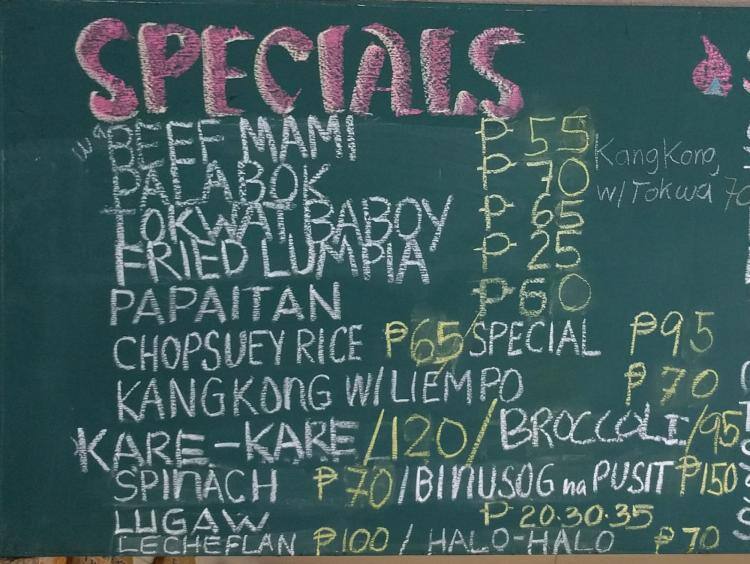 SPECIALS
BEEF MAMI P 55
PALABOK P 70
Kangkong,
w/Tokwa 70
TOKWAT BABOY P 65
FRIED LUMPIA P 25
PAPAITAN P60
CHOPSUEY RICE ₱65/SPECIAL ₱95
KANGKONG W/LIEMPO ₱70
KARE-KARE/120/BROCCOLI/95
SPINACH ₱70/BINUSOG na PUSIT ₱150
LUGAW P 20.30.35
LECHEFLAN ₱100 / HALO-HALO ₱70